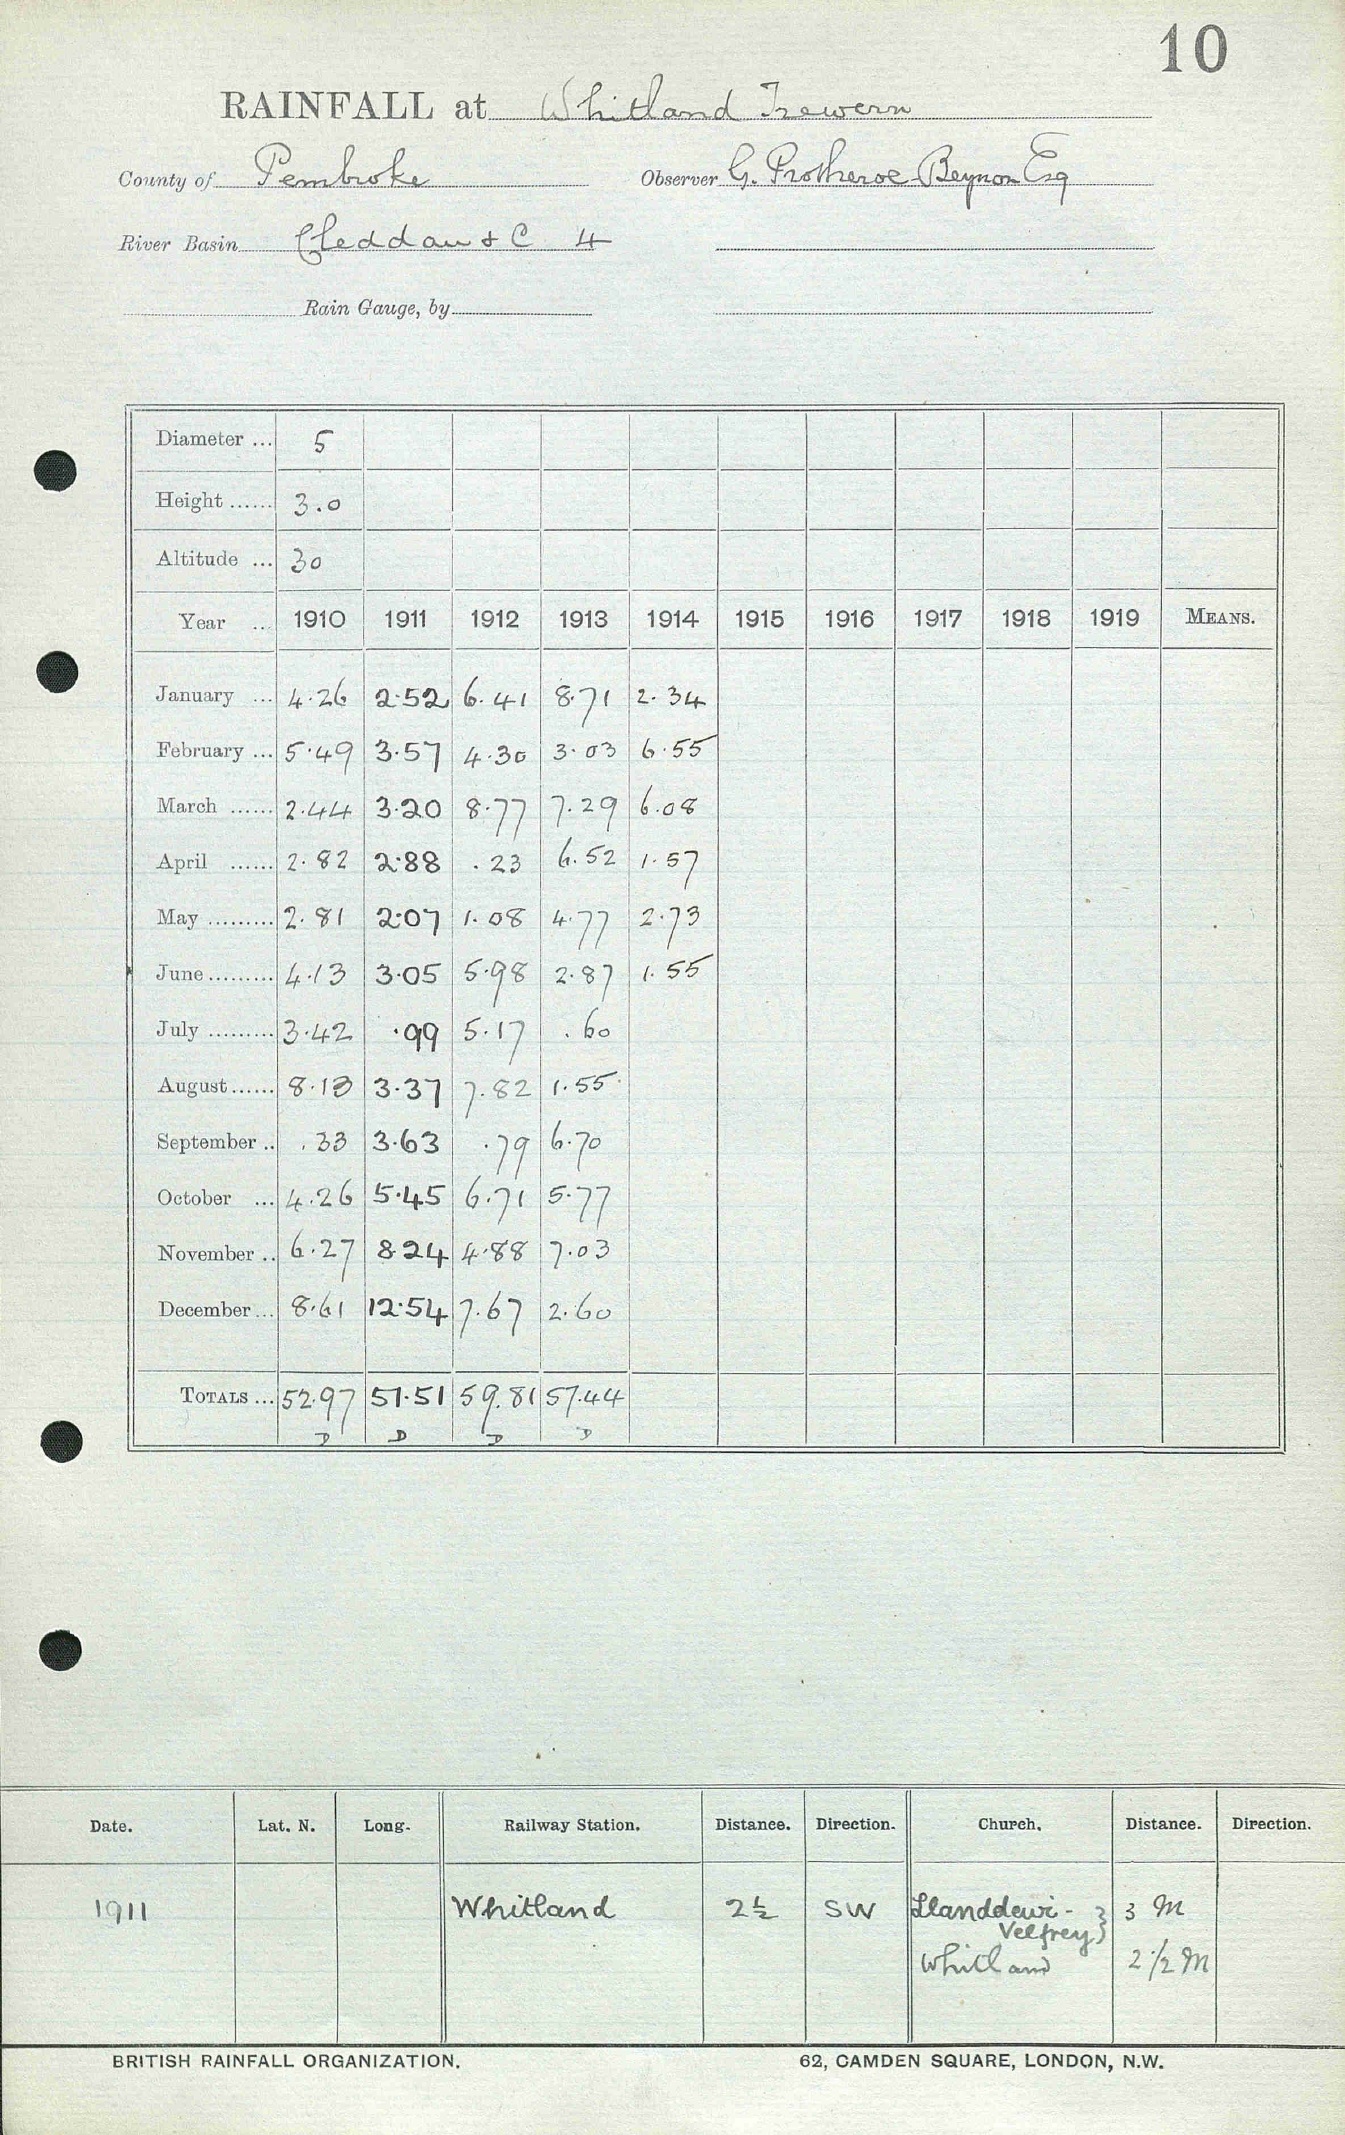 10
RAINFALL at Whitland Trewern
County of Pembroke Observer G. Protheroe-Beynon Esq
River Basin Cleddau & C 4
Rain Gauge, by
Diameter ... 5
Height ...... 3.0
Altitude ... 30
Year ... 1910 1911 1912 1913 1914 1915 1916 1917 1918 1919 MEANS.
January ... 4.26 2.52 6.41 8.71 2.34
February ... 5.49 3.57 4.30 3.03 6.55
March ...... 2.44 3.20 8.77 7.29 6.08
April ...... 2.82 2.88 .23 6.52 1.57
May ......... 2.81 2.07 1.08 4.77 2.73
June ......... 4.13 3.05 5.98 2.87 1.55
July ......... 3.42 .99 5.17 .60
August ...... 8.13 3.37 7.82 1.55
September .. .33 3.63 .79 6.70
October ... 4.26 5.45 6.71 5.77
November .. 6.27 8.24 4.88 7.03
December ... 8.61 12.54 7.67 2.60
TOTALS ... 52.97 51.51 59.81 57.44
D D D D
Date. Lat. N. Long. Railway Station. Distance. Direction. Church. Distance. Direction.
1911 Whitland 2½ SW Llanddewi- 3 M
Velfrey
Whitland 2 1/2 M
BRITISH RAINFALL ORGANIZATION. 62, CAMDEN SQUARE, LONDON, N.W.